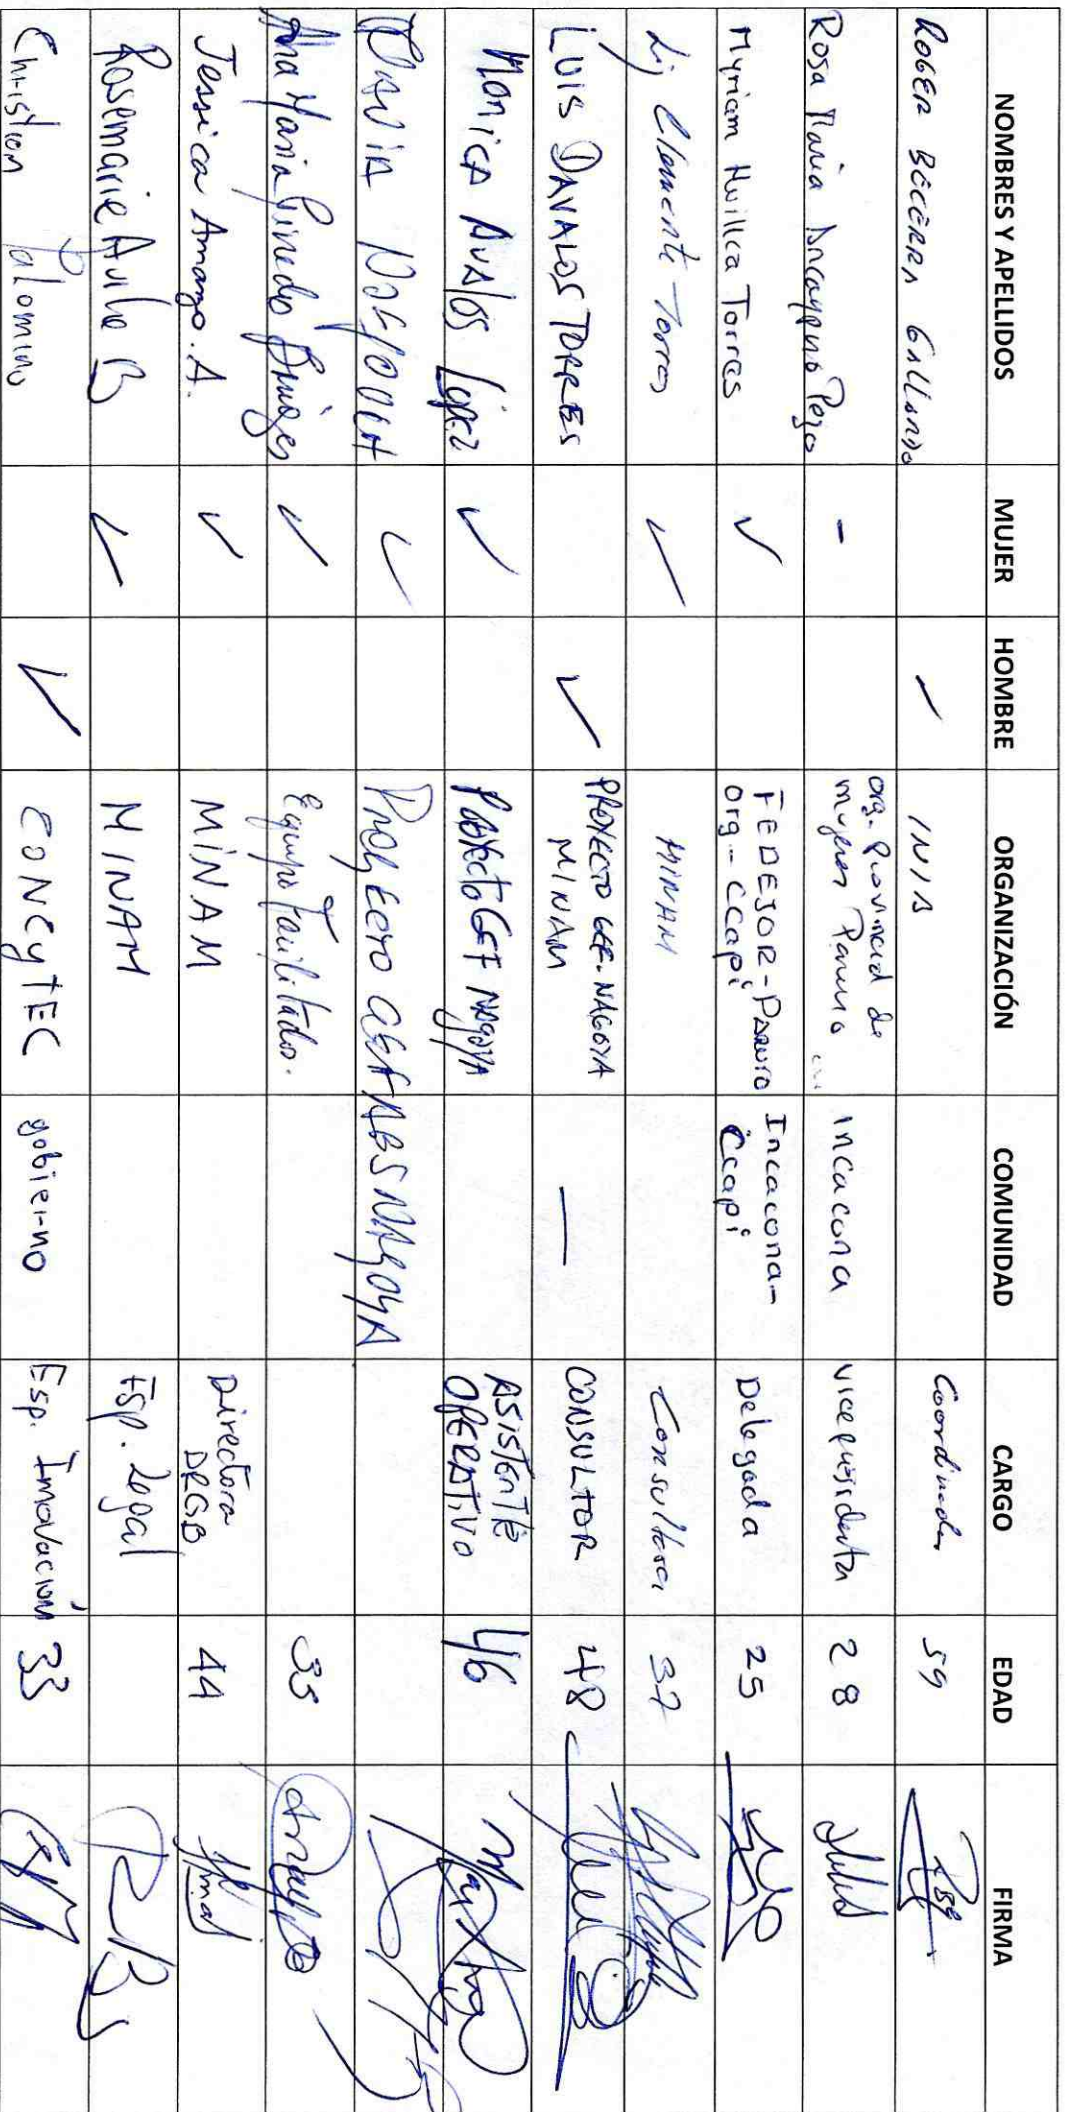 NOMBRES Y APELLIDOS MUJER HOMBRE ORGANIZACIÓN COMUNIDAD CARGO EDAD FIRMA
ROGER BECERRA GALLARDO ✓ INIA Coordinador 59
Rosa Maria Ancayppuro Pezo - org. Provincial de mujeres Paruro ... Incacona vicepresidenta 28
Myriam Huillca Torres ✓ FEDEJOR-Paruro org-Ccapi Incacona-Ccapi Delegada 25
Liz Clemente Torres ✓ MINAM Consultora 37
LUIS DAVALOS TORRES ✓ PROYECTO GEF-NAGOYA MINAM — CONSULTOR 48
Monica Avalos López ✓ PROYECTO GEF NAGOYA ASISTENTE OPERATIVO 46
✓ PROYECTO GEF ABS NAGOYA
Ana Maria Pinedo ✓ Equipo Facilitador. 35
Jessica Amanzo. A. ✓ MINAM Directora DRGB 44
Rosemarie Avila B ✓ MINAM Esp. Legal
Christian Palomino ✓ CONCyTEC gobierno Esp. Innovación 33